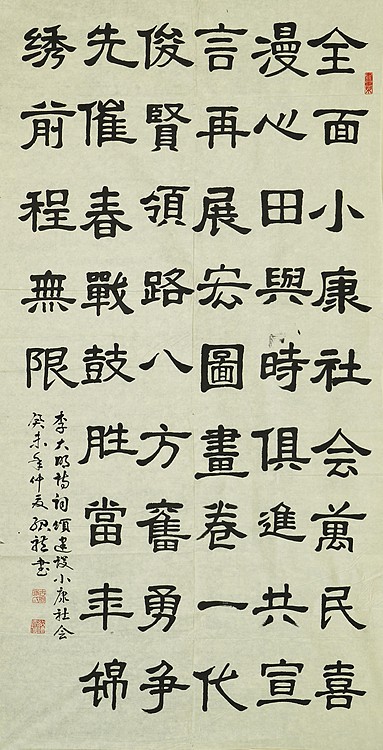 全面小康社会萬民喜
漫心田與時俱進共宣
言再展宏圖畫卷一代
俊賢領路八方奮勇争
先催春戰鼓胜當年錦
绣前程無限
李大明诗詞颂建設小康社会
癸未年仲夏書